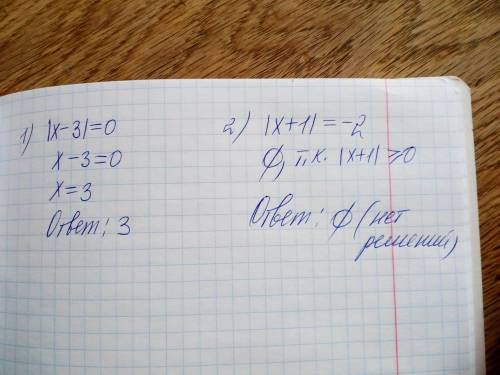 1) |x-3|=0
x-3=0
x=3
Ответ: 3
2) |x+1|=-2
∅, т.к. |x+1|⩾0
Ответ: ∅ (нет
решений)